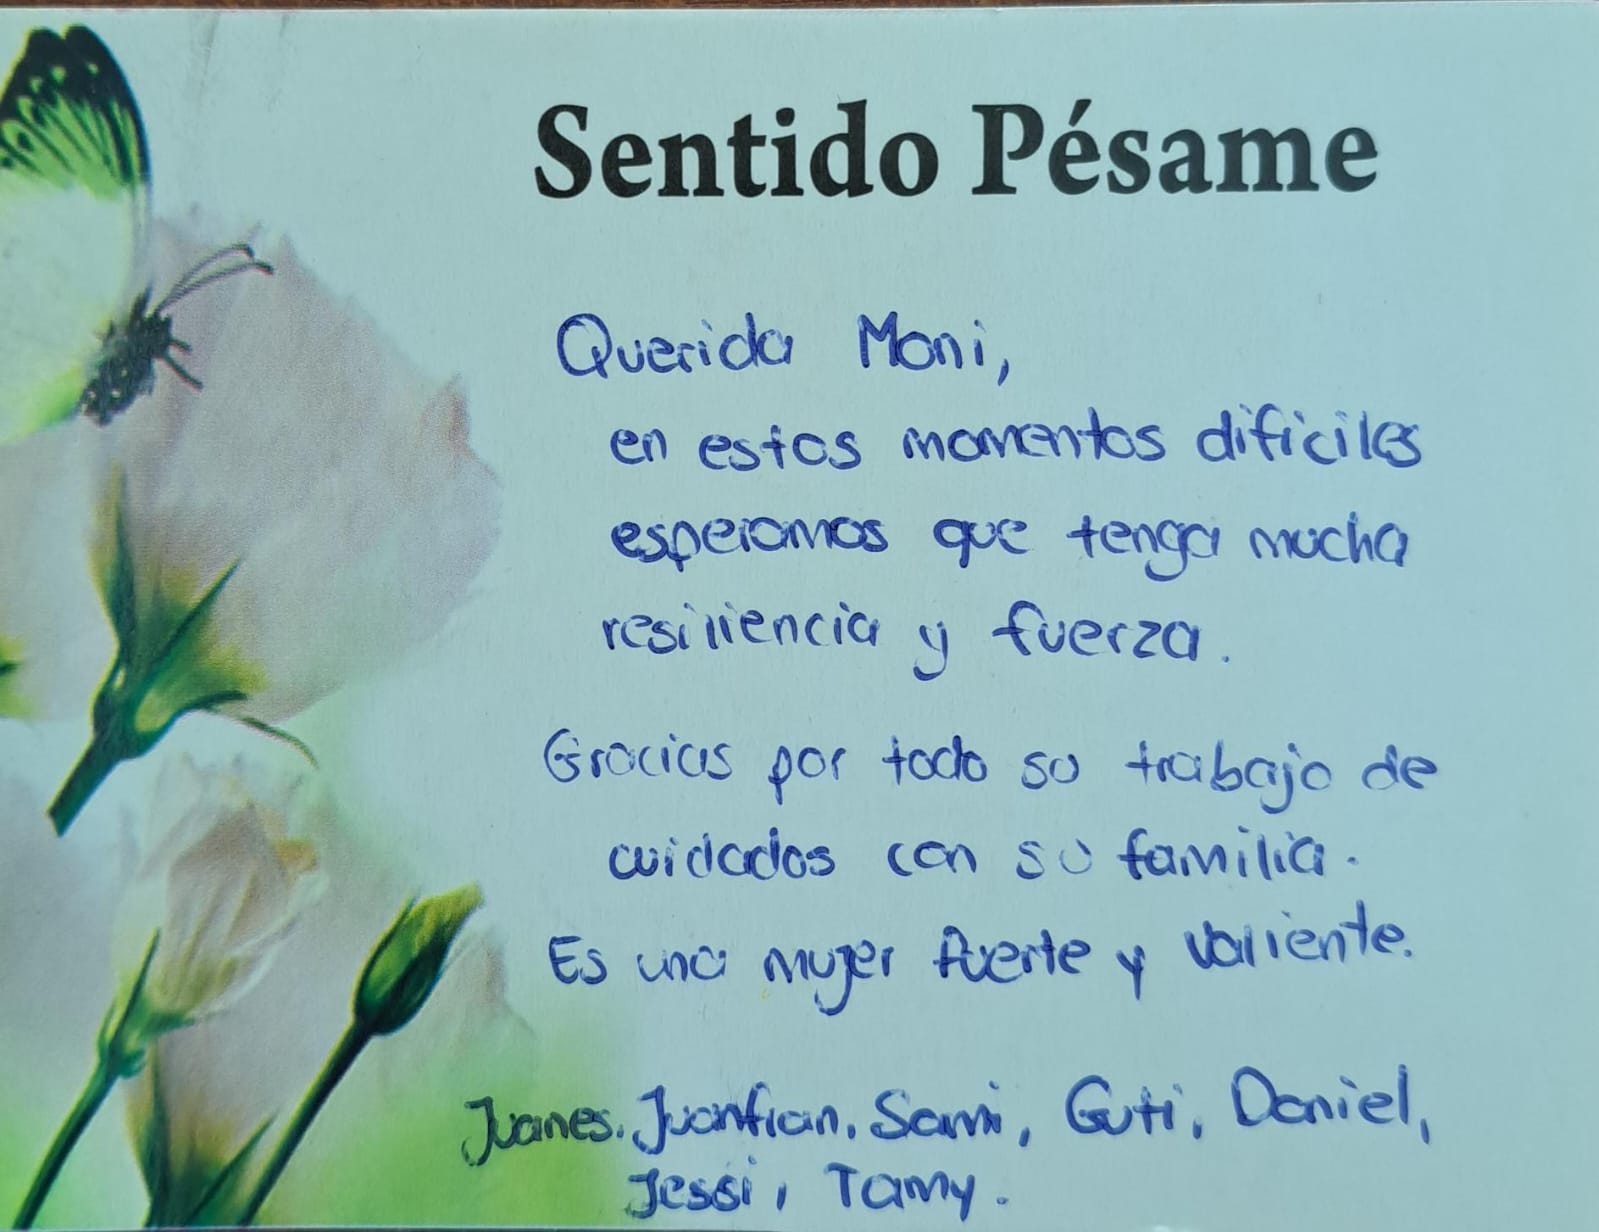 Sentido Pésame
Querida Moni,
en estos momentos dificiles
esperamos que tenga mucha
resiliencia y fuerza.
Gracias por todo su trabajo de
cuidados con su familia.
Es una mujer fuerte y valiente.
Juanes. Juanfran, Sami, Guti, Daniel,
Jessi, Tamy.